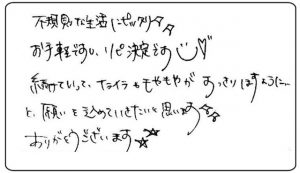 不規則な生活にピッタリ☆☆
お手軽ですし、リピ決定です
続けていって、イライラもモヤモヤがすっきりしますように...
と、願いを込めていきたいと思います☆☆
ありがとうございます☆☆